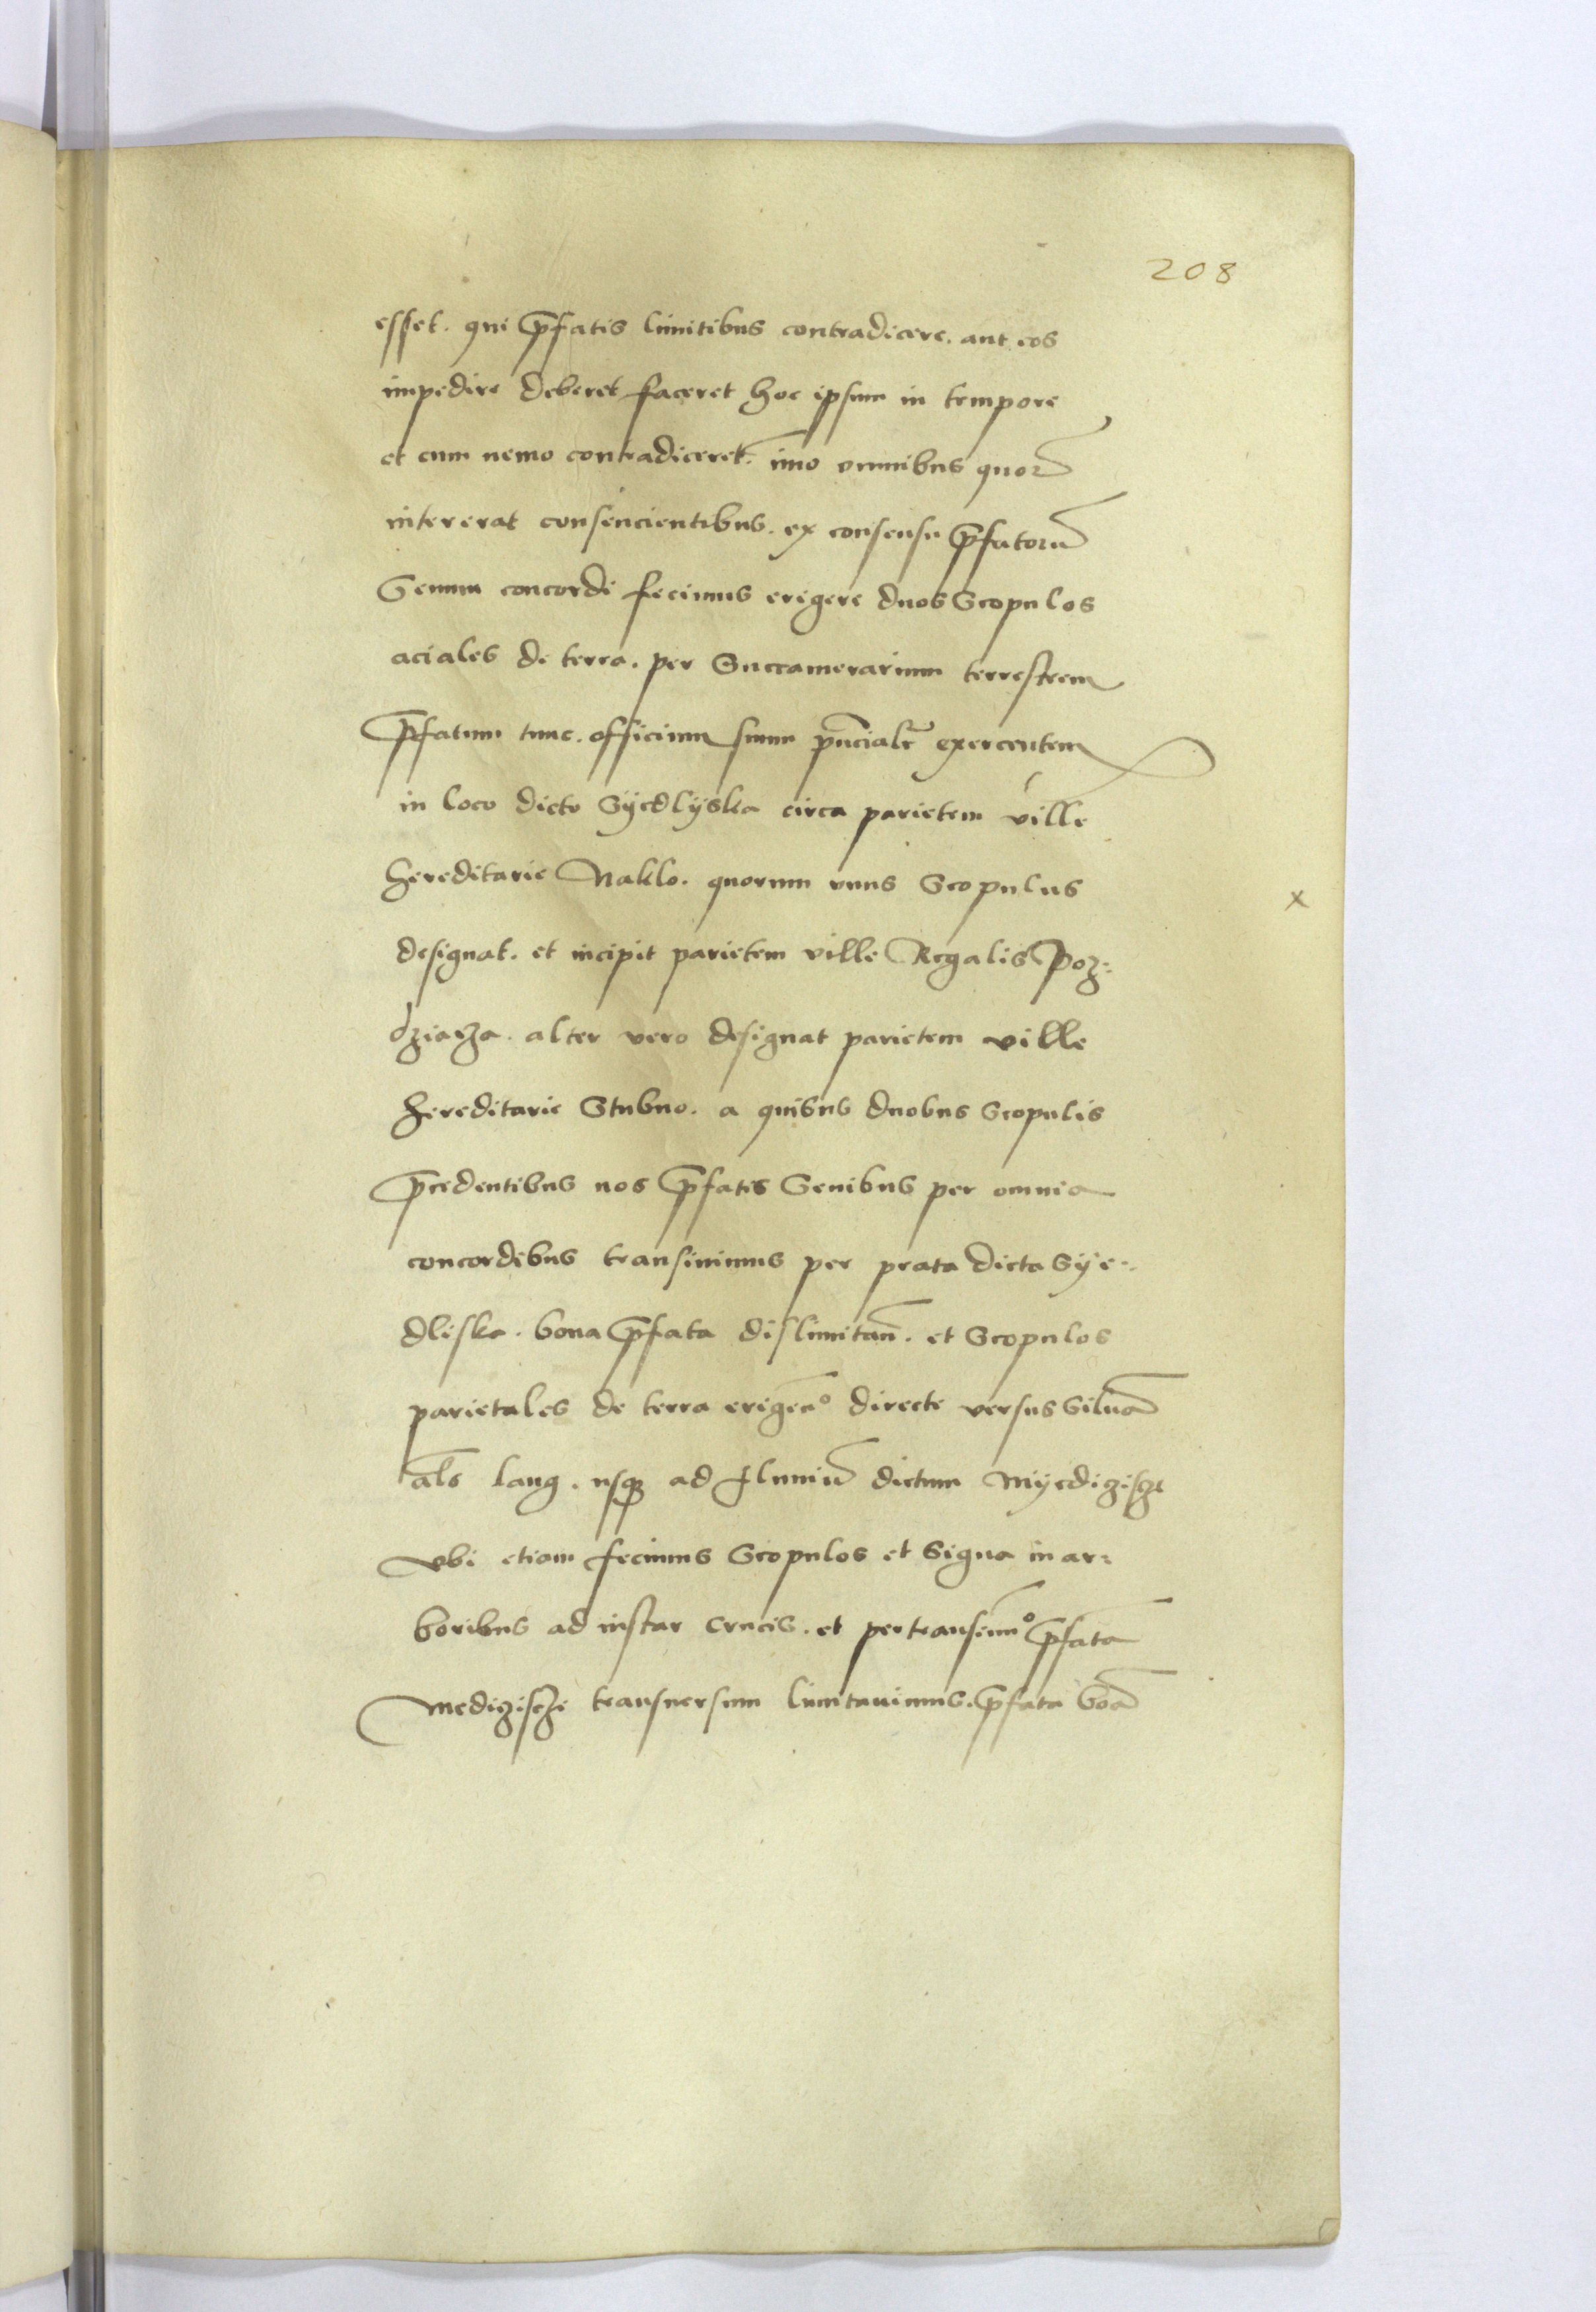 208
esset. qui p̄fatis limitibus contradicere. aut eos
impedire deberet faceret hoc ipsum in tempore
et cum nemo contradiceret. imo omnibus quor̄
intererat consencientibus. ex consensu p̄fatorū
Senum concordi fecimus erigere duos Scopulos
aciales de terra. per Succamerarium terrestrem
p̄fatum tunc. officium suum p̄ncialr̄ exercentem
in loco dicto Sÿedlÿska circa parietem ville
hereditarie Naklo. quorum vnus Scopulus
designat. et incipit parietem ville Regalis Poz:
dziacza. alter vero designat parietem ville
hereditarie Stubno. a quibus duobus Scopulis
p̄cedentibus nos p̄fatis Senibus per omnia
concordibus transiuimus per prata dicta Sÿe:
dliska. bona p̄fata dislimitan̄. et Scopulos
parietales de terra erigen̄º directe versus Siluā
al̄s lang. usqꝫ ad fluuiū dictum Mÿedizische
vbi etiam fecimus Scopulos et Signa in ar:
boribus ad instar Crucis. et pertransiuīº p̄fata
Medizischi transuersum limitauimus. p̄fata boā
x